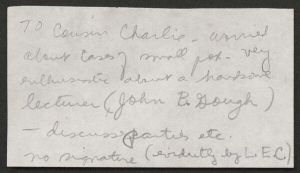 To Cousin Charlie - worried
about cases of small pox - very
enthusiastic about a handsome
lecturer (John B. Gough)
- discusses parties etc.
no signature (evidently by L.E.C)